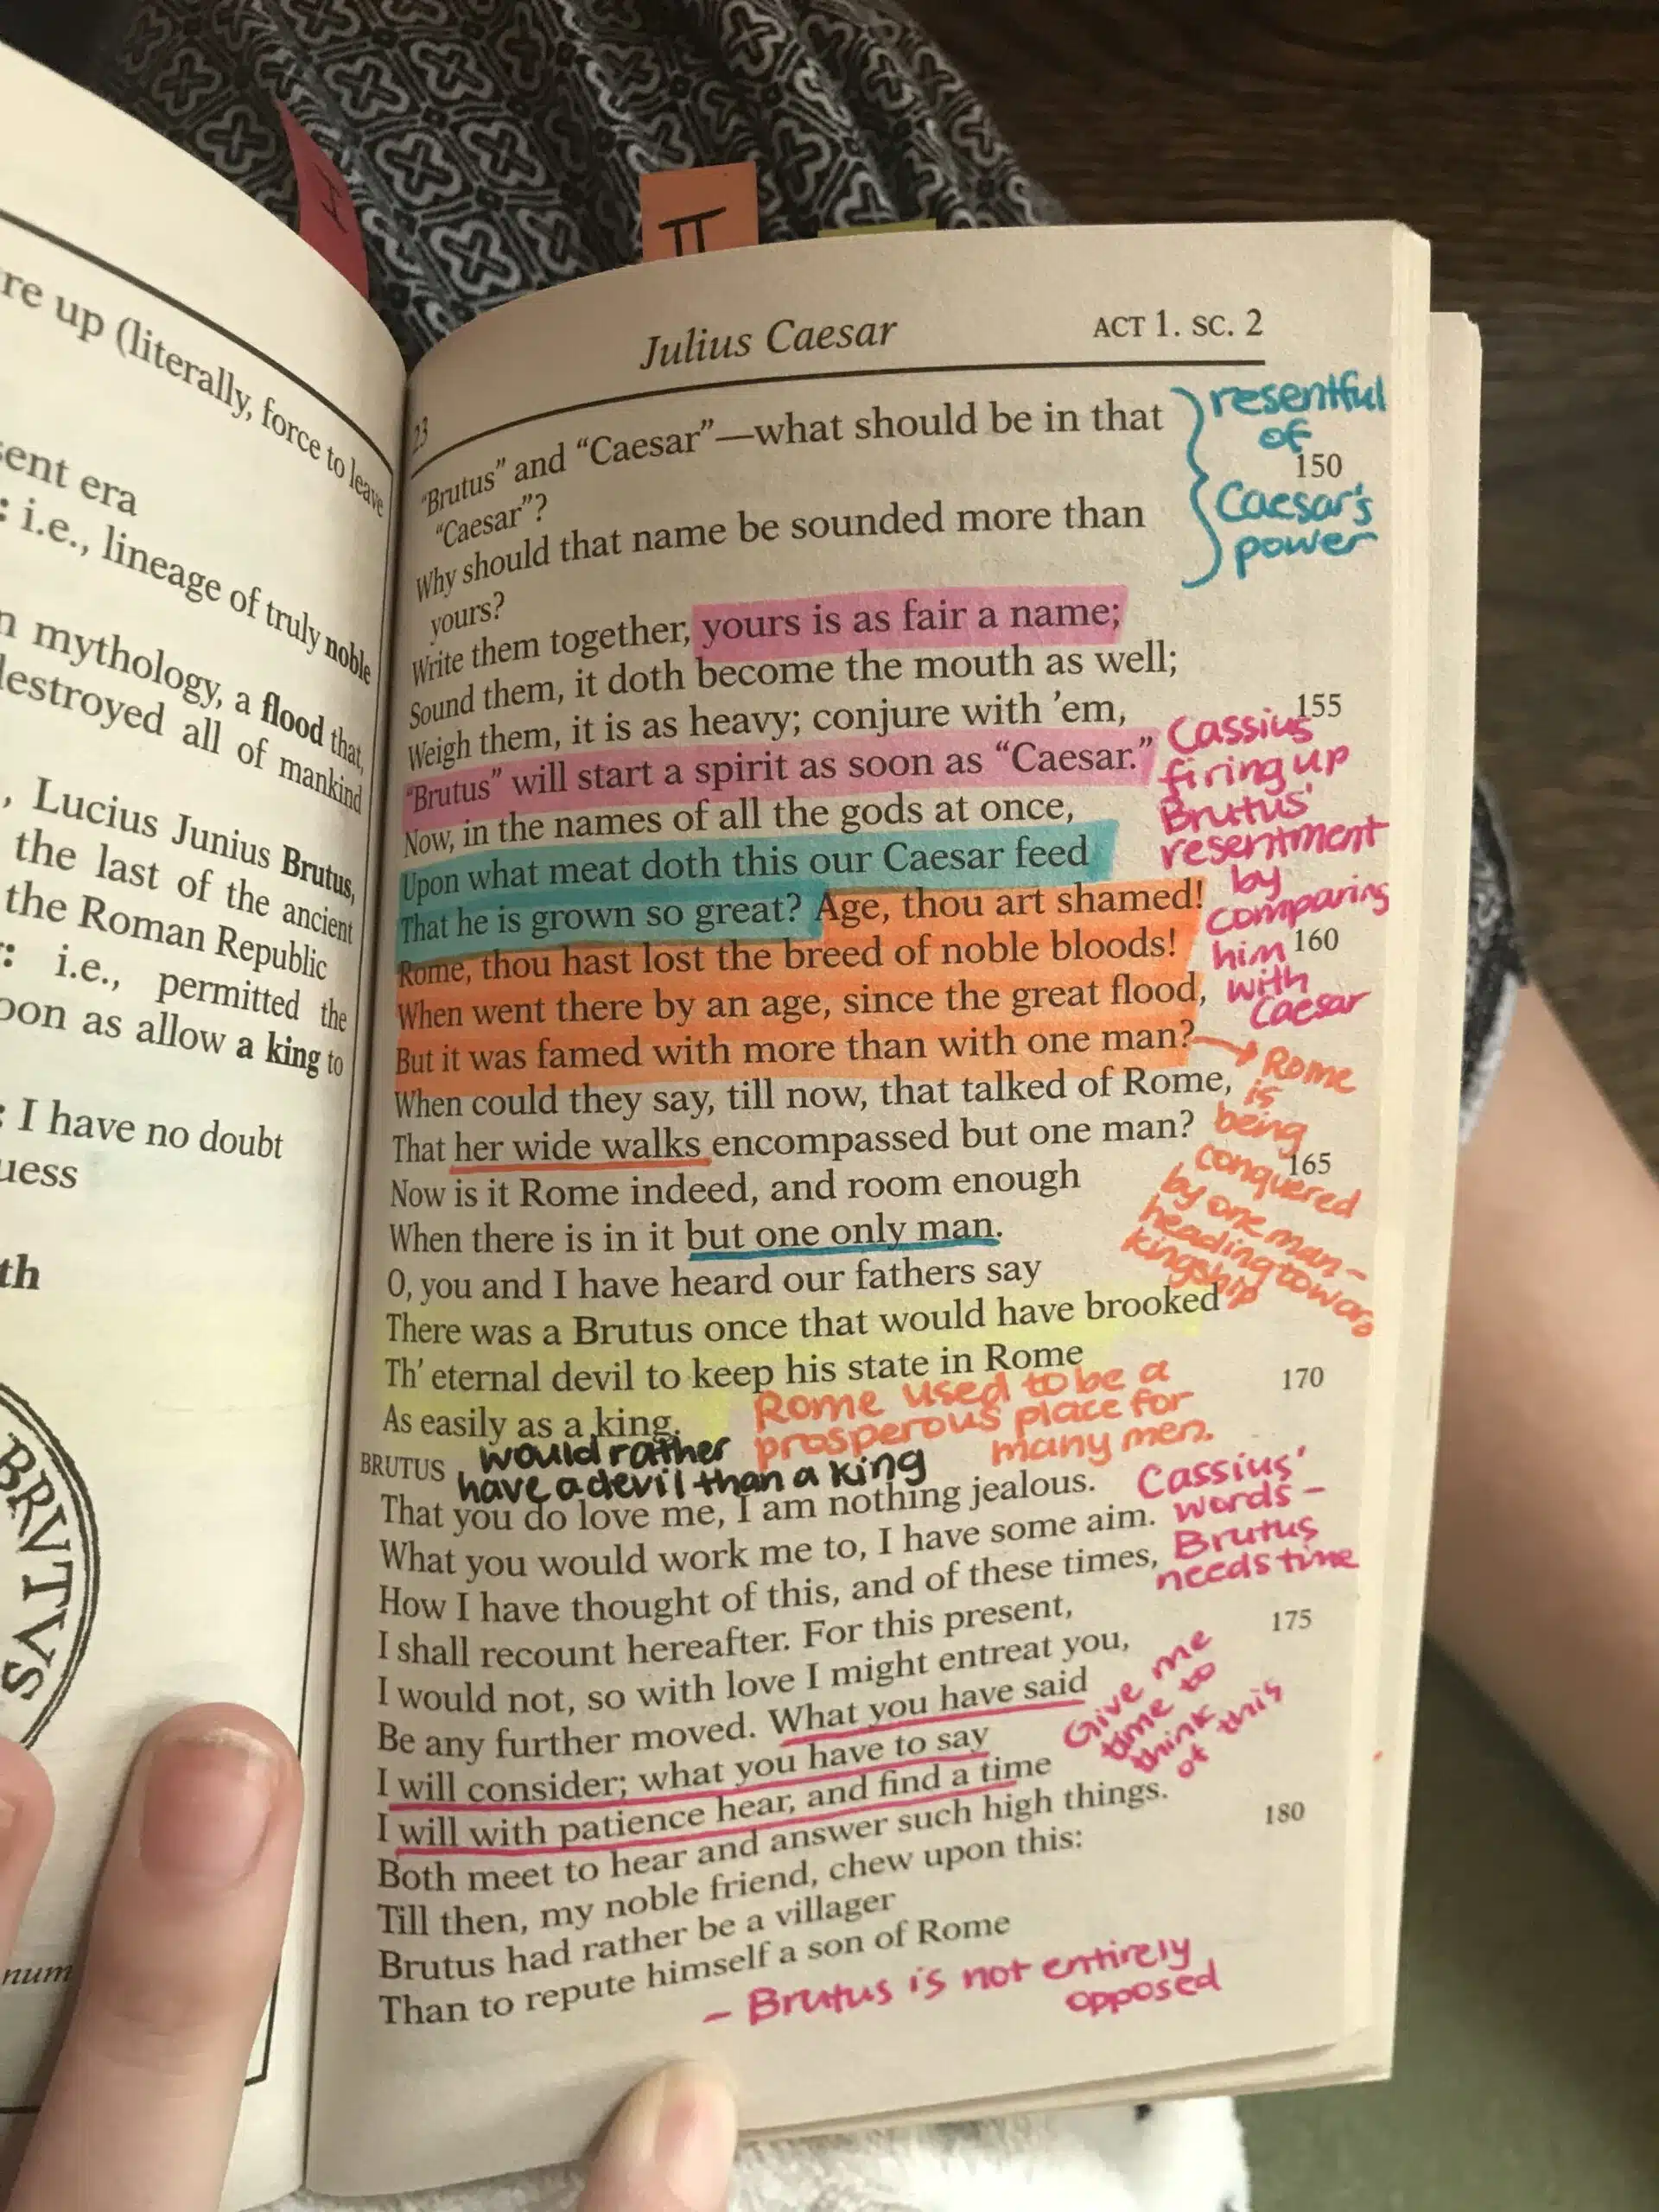 I
II
re up (literally, force to leave
sent era
: i.e., lineage of truly noble
n mythology, a flood that,
destroyed all of mankind
, Lucius Junius Brutus,
the last of the ancient
the Roman Republic
: i.e., permitted the
oon as allow a king to
: I have no doubt
uess
th
BRVTVS
num
23
Julius Caesar
ACT 1. SC. 2
"Brutus" and "Caesar"—what should be in that
"Caesar"?
150
Why should that name be sounded more than
yours?
Write them together, yours is as fair a name;
Sound them, it doth become the mouth as well;
Weigh them, it is as heavy; conjure with 'em,
155
"Brutus" will start a spirit as soon as "Caesar."
Now, in the names of all the gods at once,
Upon what meat doth this our Caesar feed
That he is grown so great? Age, thou art shamed!
Rome, thou hast lost the breed of noble bloods!
160
When went there by an age, since the great flood,
But it was famed with more than with one man?
When could they say, till now, that talked of Rome,
That her wide walks encompassed but one man?
Now is it Rome indeed, and room enough
165
When there is in it but one only man.
O, you and I have heard our fathers say
There was a Brutus once that would have brooked
Th' eternal devil to keep his state in Rome
As easily as a king.
170
BRUTUS
That you do love me, I am nothing jealous.
What you would work me to, I have some aim.
How I have thought of this, and of these times,
I shall recount hereafter. For this present,
I would not, so with love I might entreat you,
175
Be any further moved. What you have said
I will consider; what you have to say
I will with patience hear, and find a time
Both meet to hear and answer such high things.
Till then, my noble friend, chew upon this:
180
Brutus had rather be a villager
Than to repute himself a son of Rome
resentful
of
Caesar's
power
Cassius
firing up
Brutus'
resentment
by
comparing
him
with
Caesar
Rome
is
being
conquered
by one man-
heading toward
kingship
Rome used to be a
prosperous place for
many men.
would rather
have a devil than a king
Cassius'
words -
Brutus
needs time
Give me
time to
think
of this
- Brutus is not entirely
opposed